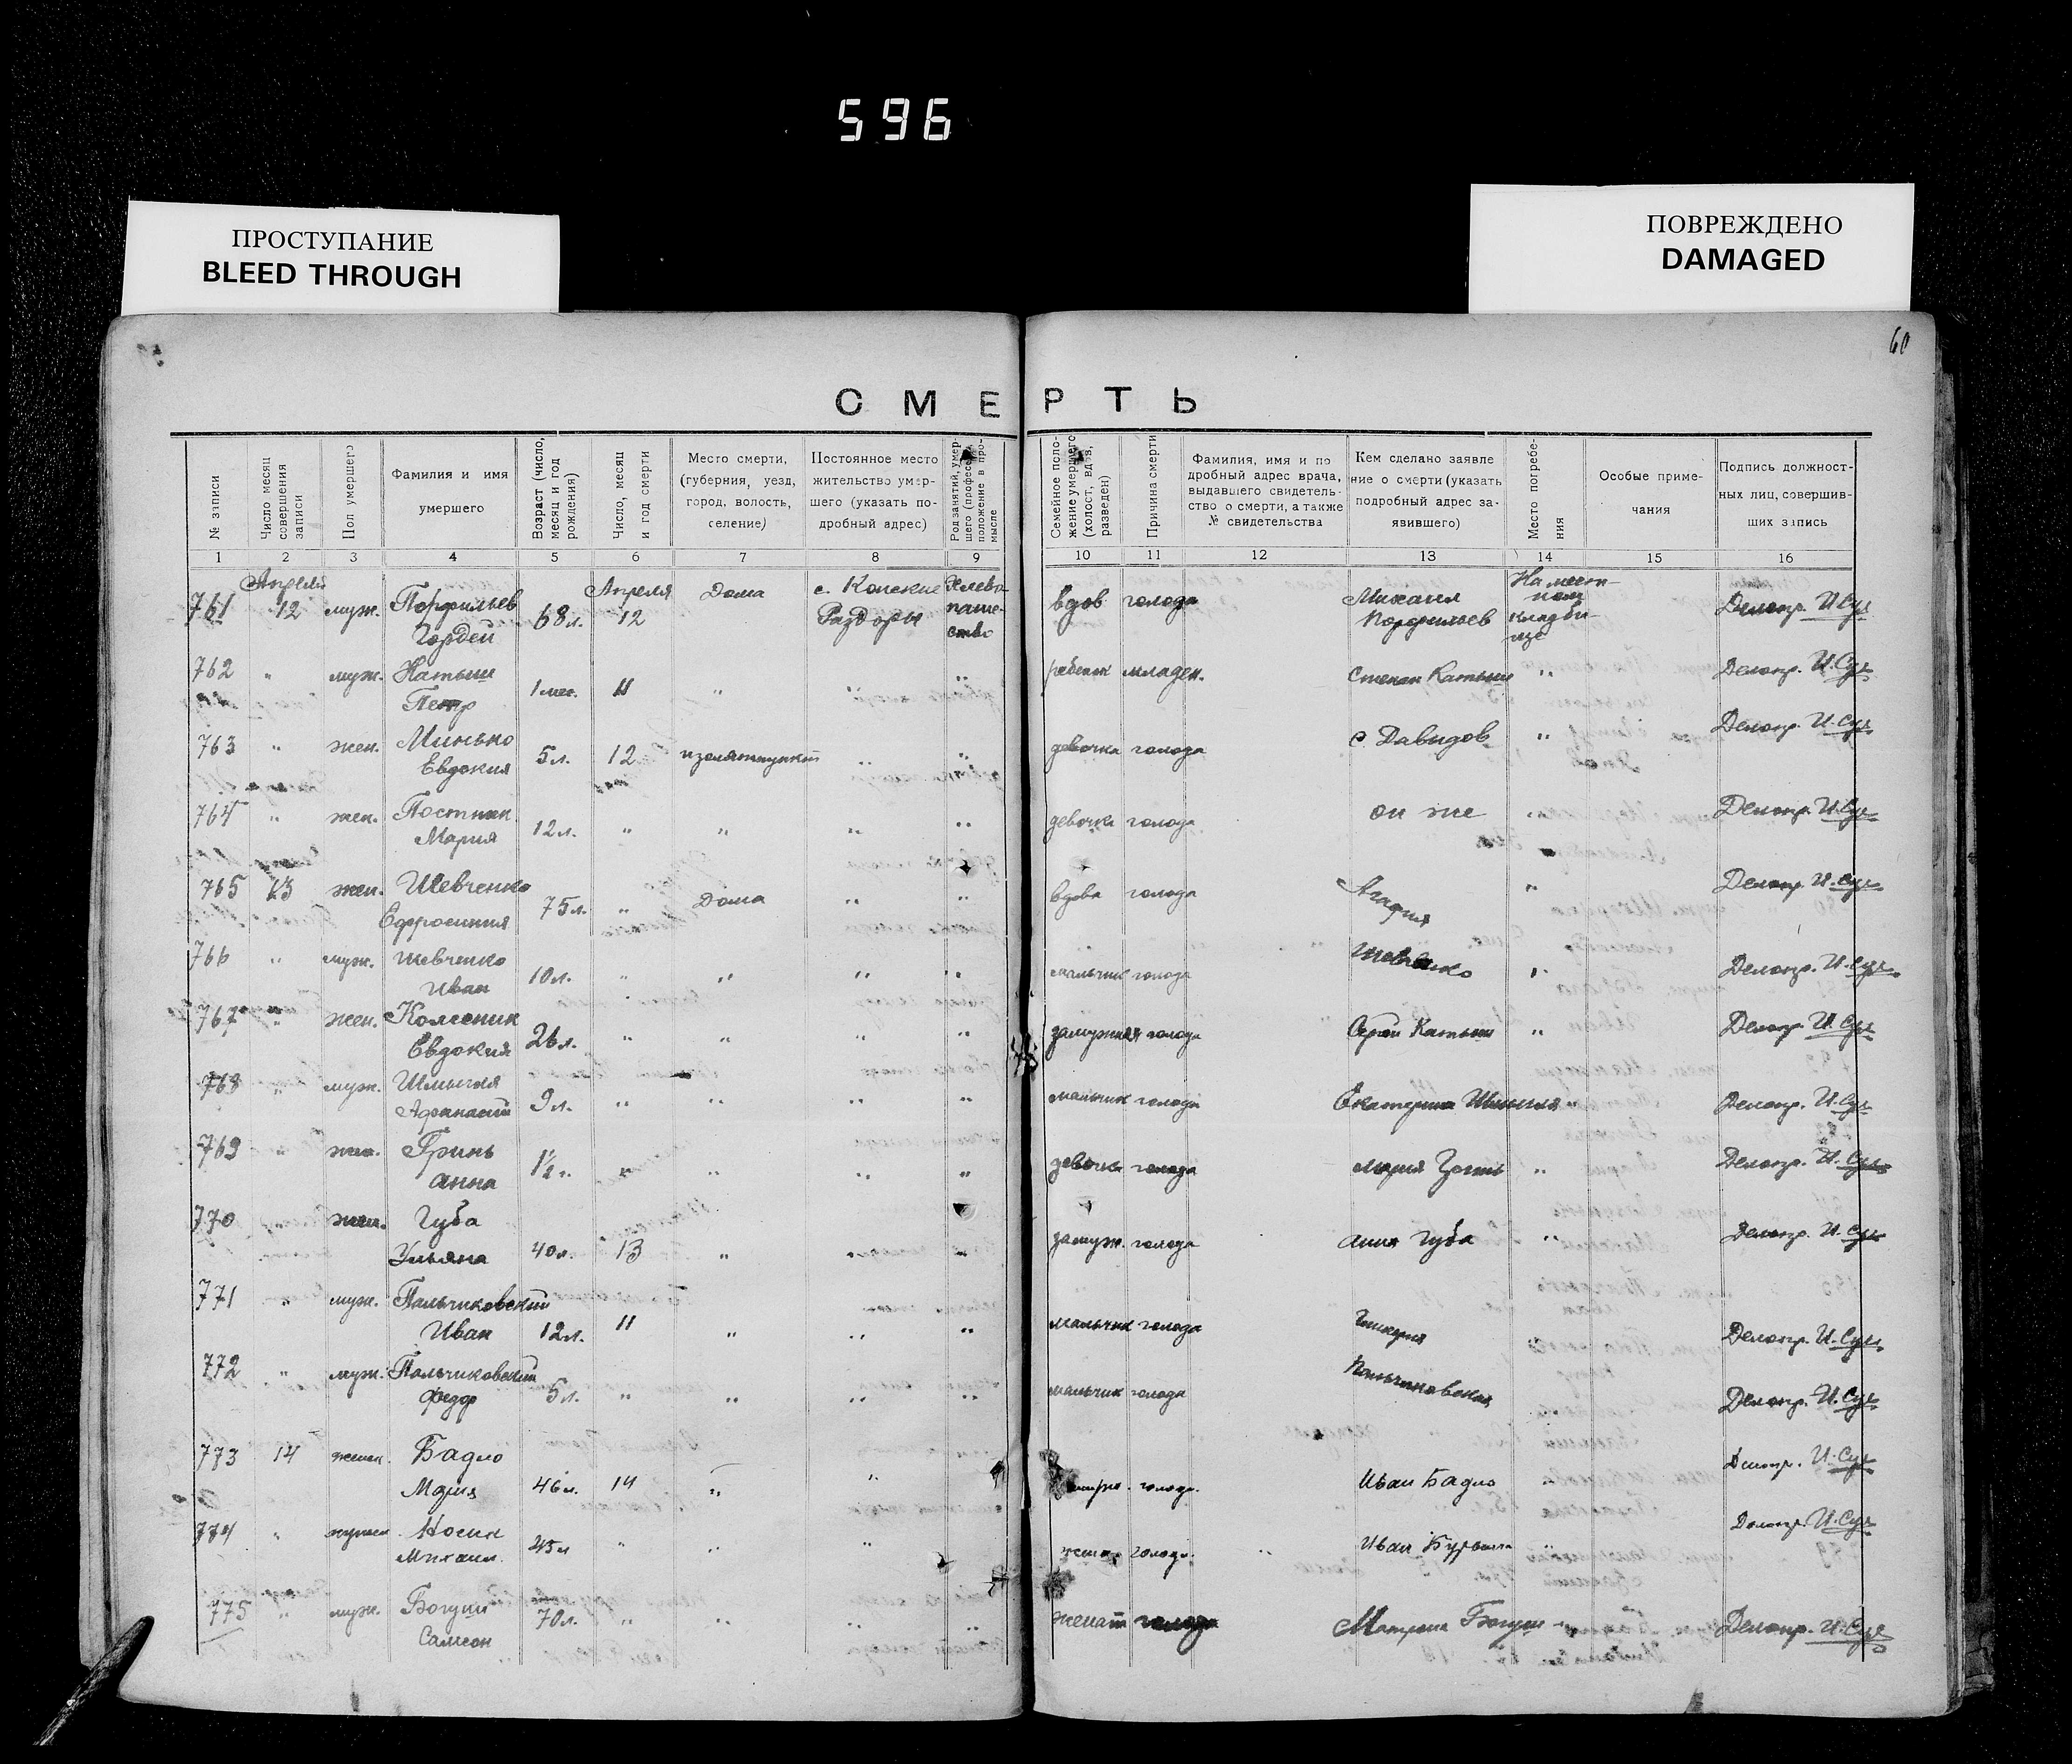 596
ПРОСТУПАНИЕ
BLEED THROUGH
ПОВРЕЖДЕНО
DAMAGED
60
СМЕРТЬ
№ записи
Число месяц совершения записи
Пол умершего
Фамилия и имя умершего
Возраст (число, месяц и год рождения)
Число, месяц и год смерти
Место смерти, (губерния, уезд, город, волость, селение)
Постоянное место жительство умершего (указать подробный адрес)
Род занятий, умершего (професс. положение в промысле
Семейное положение умершего (холост, вдов, разведен)
Причина смерти
Фамилия, имя и подробный адрес врача, выдавшего свидетельство о смерти, а также № свидетельства
Кем сделано заявление о смерти (указать подробный адрес заявившего)
Место погребения
Особые примечания
Подпись должностных лиц, совершивших запись
1 2 3 4 5 6 7 8 9 10 11 12 13 14 15 16
761 Апреля 12 муж. Порфильев Гордей 68 л. Апреля 12 Дома с. Конские Раздоры Хлебопашество вдов голода Михаил Порфильев На местном кладбище Делопр. И. Сух
762 " муж. Катыш Петр 1 мес. 11 " " " ребенок младен. Степан Катыш " Делопр. И. Сух
763 " жен. Минько Евдокия 5 л. 12 " " девочка голода с Давидов " Делопр. И. Сух
764 " жен. Постник Мария 12 л. " " " " девочка голода он же " Делопр. И. Сух
765 13 жен. Шевченко Ефросиния 75 л. " Дома " " вдова голода " Делопр. И. Сух
766 " муж. Шевченко Иван 10 л. " " " " мальчик голода Шевченко " Делопр. И. Сух
767 " жен. Колесник Евдокия 26 л. " " " " замужняя голода Катыш " Делопр. И. Сух
768 " муж. Шмыгля Афанасий 9 л. " " " " мальчик голода Екатерина Шмыгля " Делопр. И. Сух
769 " жен. Гринь Анна 1½ г. " " " " девочка голода Мария Гринь " Делопр. И. Сух
770 " жен. Губа Ульяна 40 л. 13 " " " замуж. голода Анна Губа " Делопр. И. Сух
771 " муж. Пальчиковский Иван 12 л. 11 " " " мальчик голода Делопр. И. Сух
772 " муж. Пальчиковский Федор 5 л. " " " " мальчик голода Пальчиковская Делопр. И. Сух
773 14 женск. Бадло Мария 46 л. 14 " " голода. Иван Бадло " Делопр. И. Сух
774 " Михаил 45 л " " " голода. " Иван " Делопр. И. Сух
775 " муж. Богуш Самсон 70 л. " " " " женат голода Матрена Богуш " Делопр. И. Сух